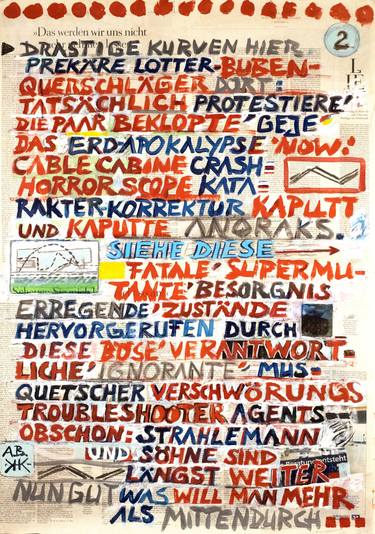 »Das werden wir uns nicht
2
DRASTIGE KURVEN HIER
PREKÄRE LOTTER-BUBEN-
QUERSCHLÄGER DORT:
TATSÄCHLICH PROTESTIERE'
DIE PAAR BEKLOPTE' GEJE'
DAS ERD-APOKALYPSE 'NOW.'
CABLE CABINE CRASH-
HORROR SCOPE KATA-
RAKTER-KORREKTUR KAPUTT
UND KAPUTTE ANORAKS.
SIEHE DIESE
'FATALE' SUPERMU-
TANTE' BESORGNIS
ERREGENDE' ZUSTÄNDE
HERVORGERUFEN DURCH
DIESE 'BÖSE' VERANTWORT-
LICHE' IGNORANTE' MUS-
QUETSCHER VERSCHWÖRUNGS
TROUBLESHOOTER AGENTS-
OBSCHON: STRAHLEMANN
A.B. UND SÖHNE SIND
LÄNGST WEITER
NUN GUT WAS WILL MAN MEHR
ALS MITTENDURCH